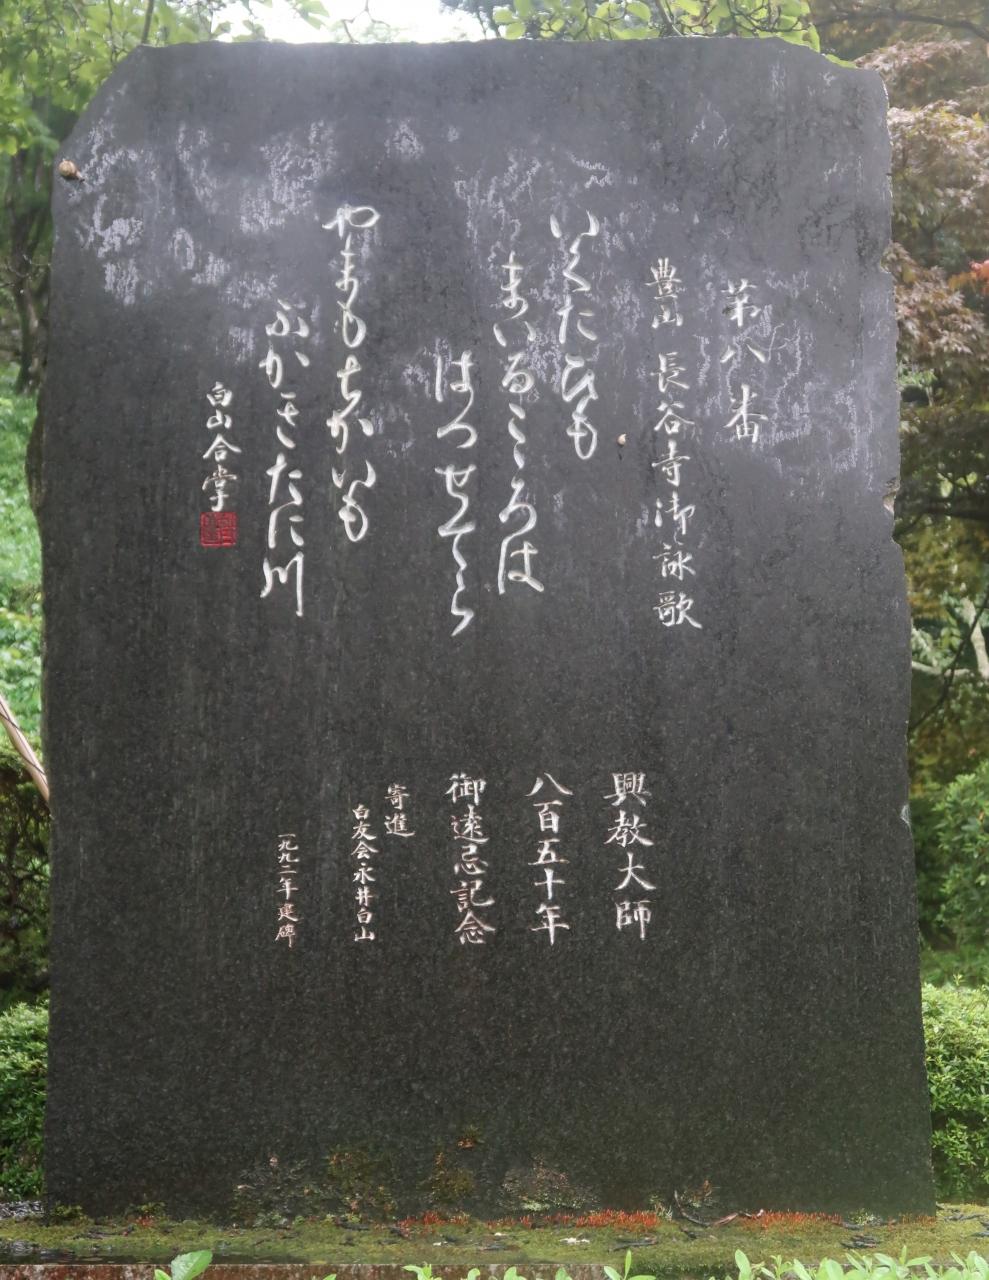 第八番
豊山 長谷寺御詠歌
いくたびも
まいるこころは
はつせてら
やまもちかいも
ふかきたに川
白山合掌
興教大師
八百五十年
御遠忌記念
寄進
白友会永井白山
一九九二年建碑